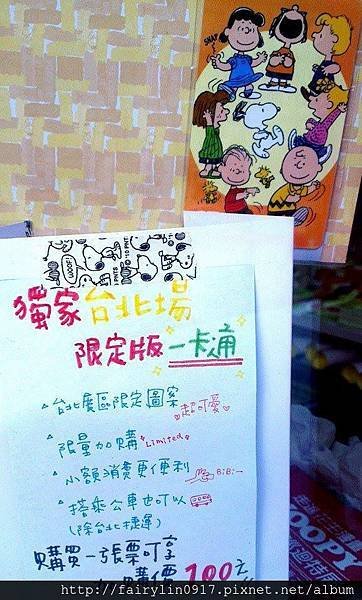 SNAP
獨家台北場
限定版一卡通
台北展區限定圖案
超可愛
限量加購 Limited
小額消費更便利 BiBi~
搭乘公車也可以
(除台北捷運)
購買一張票可享
購價100元
OOPY
http://fairylin0917.pixnet.net/album